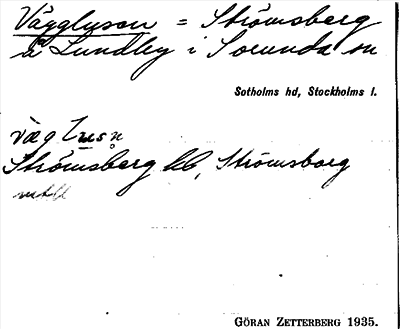 Vägglyson = Strömsberg
å Lundby i Sorunda sn
Sotholms hd, Stockholms l.
Strömsberg hb, Strömsborg
GÖRAN ZETTERBERG 1935.